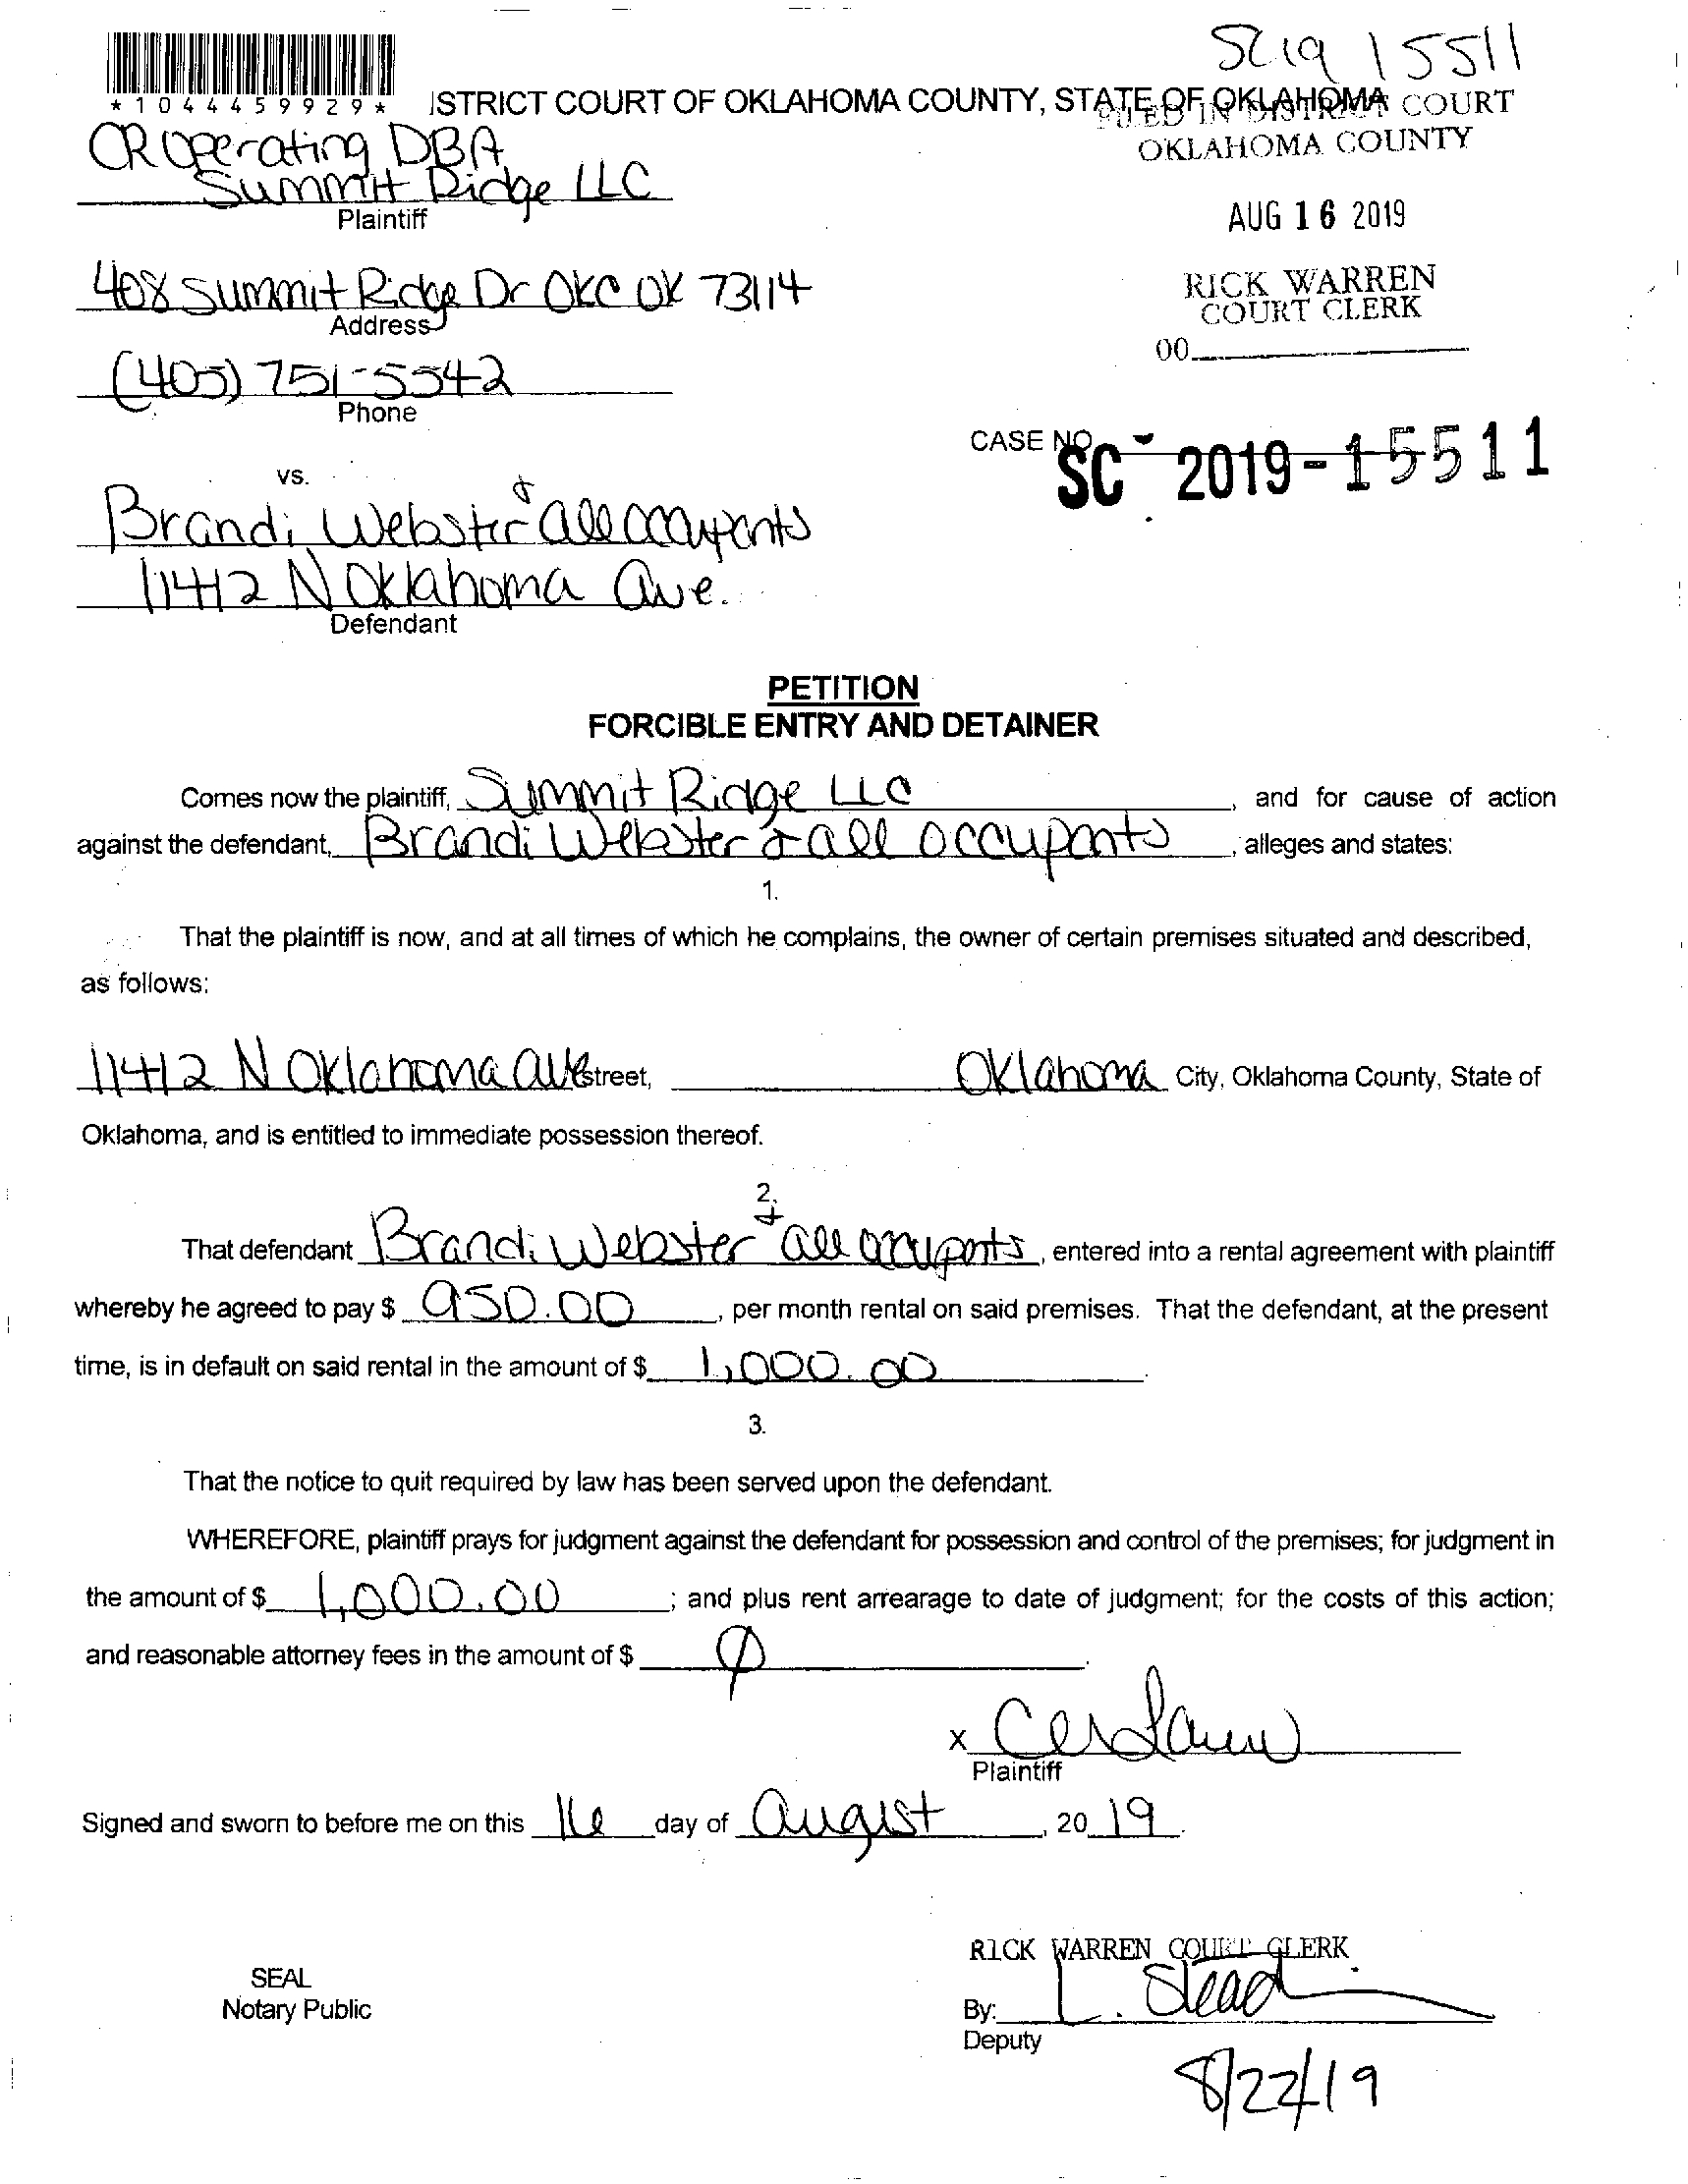 SC19 15511
*1044459929* ISTRICT COURT OF OKLAHOMA COUNTY, STATE OF OKLAHOMA
FILED IN DISTRICT COURT
OKLAHOMA COUNTY
CR Operating DBA
Summit Ridge LLC
Plaintiff
AUG 16 2019
408 Summit Ridge Dr OKC OK 73114
Address
RICK WARREN
COURT CLERK
00
(405) 751-5542
Phone
CASE NO.
SC - 2019-15511
vs.
Brandi Webster & all occupants
11412 N Oklahoma Ave.
Defendant
PETITION
FORCIBLE ENTRY AND DETAINER
Comes now the plaintiff, Summit Ridge LLC, and for cause of action
against the defendant, Brandi Webster & all occupants, alleges and states:
1.
That the plaintiff is now, and at all times of which he complains, the owner of certain premises situated and described,
as follows:
11412 N Oklahoma Ave street, Oklahoma City, Oklahoma County, State of
Oklahoma, and is entitled to immediate possession thereof.
2.
That defendant Brandi Webster & all occupants, entered into a rental agreement with plaintiff
whereby he agreed to pay $ 950.00, per month rental on said premises. That the defendant, at the present
time, is in default on said rental in the amount of $ 1,000.00.
3.
That the notice to quit required by law has been served upon the defendant.
WHEREFORE, plaintiff prays for judgment against the defendant for possession and control of the premises; for judgment in
the amount of $ 1,000.00; and plus rent arrearage to date of judgment; for the costs of this action;
and reasonable attorney fees in the amount of $ Ø.
X
Plaintiff
Signed and sworn to before me on this 16 day of August, 20 19.
RICK WARREN COURT CLERK
SEAL
Notary Public
By: L. Stead
Deputy
8/22/19